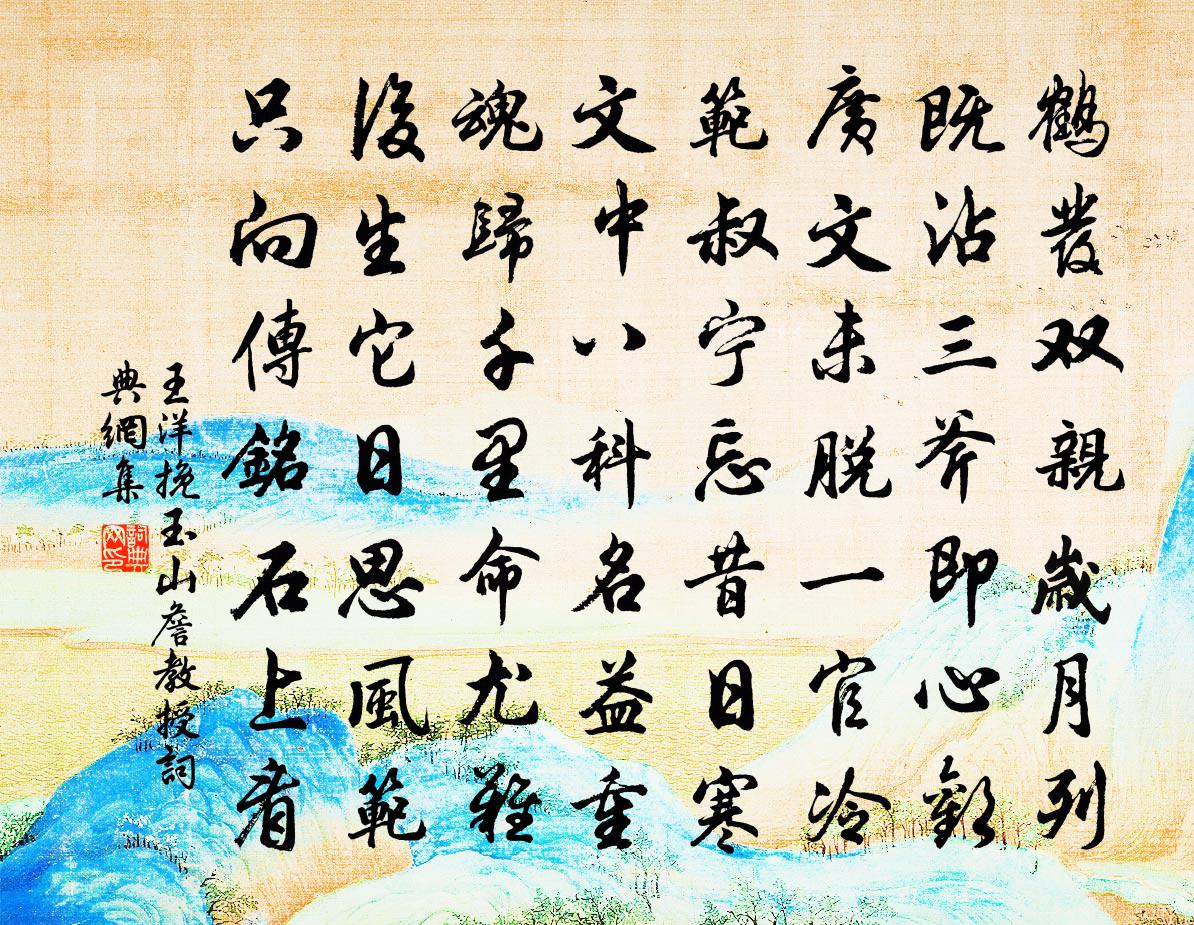 鶴發双親歲月列
既沾三斧即心歡
廣文未脱一官冷
範叔宁忘昔日寒
文中八科名益重
魂歸千里命尤難
後生它日思風範
只向傳銘石上看
王洋挽玉山詹教授詞
典網集
詞典網印